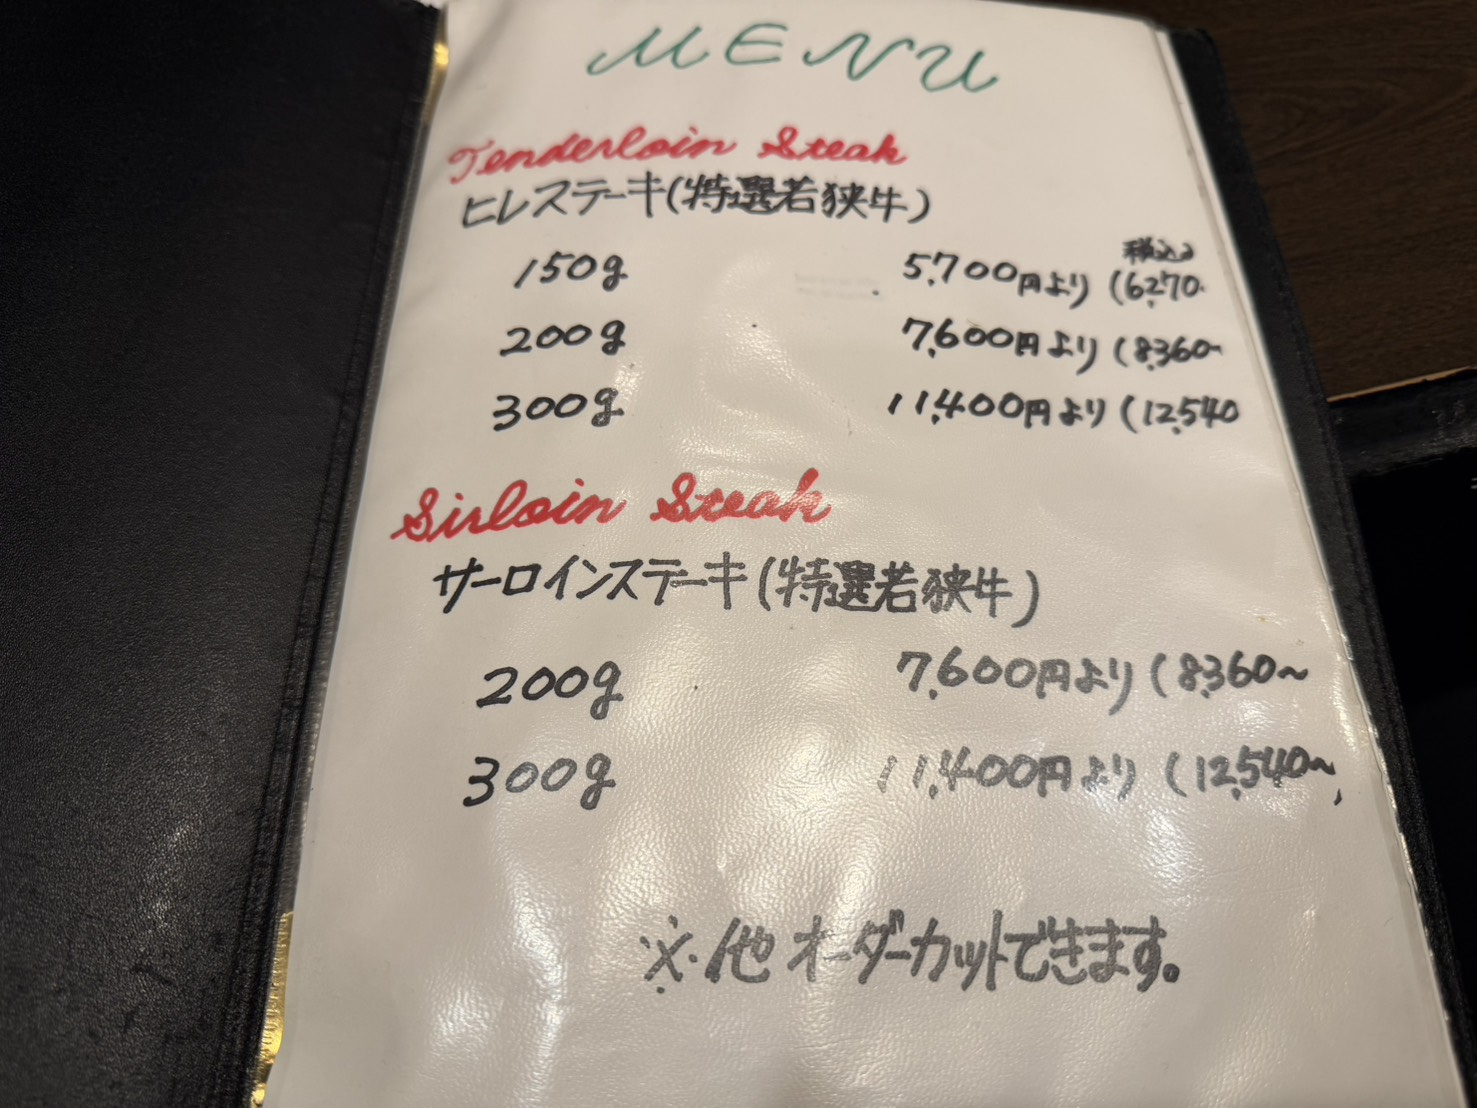 MENU
Tenderloin Steak
ヒレステーキ(特選若狭牛)
税込
150g 5,700円より (6,270~
200g 7,600円より (8,360~
300g 11,400円より (12,540
Sirloin Steak
サーロインステーキ(特選若狭牛)
200g 7,600円より (8,360~
300g 11,400円より (12,540~
※.他オーダーカットできます。